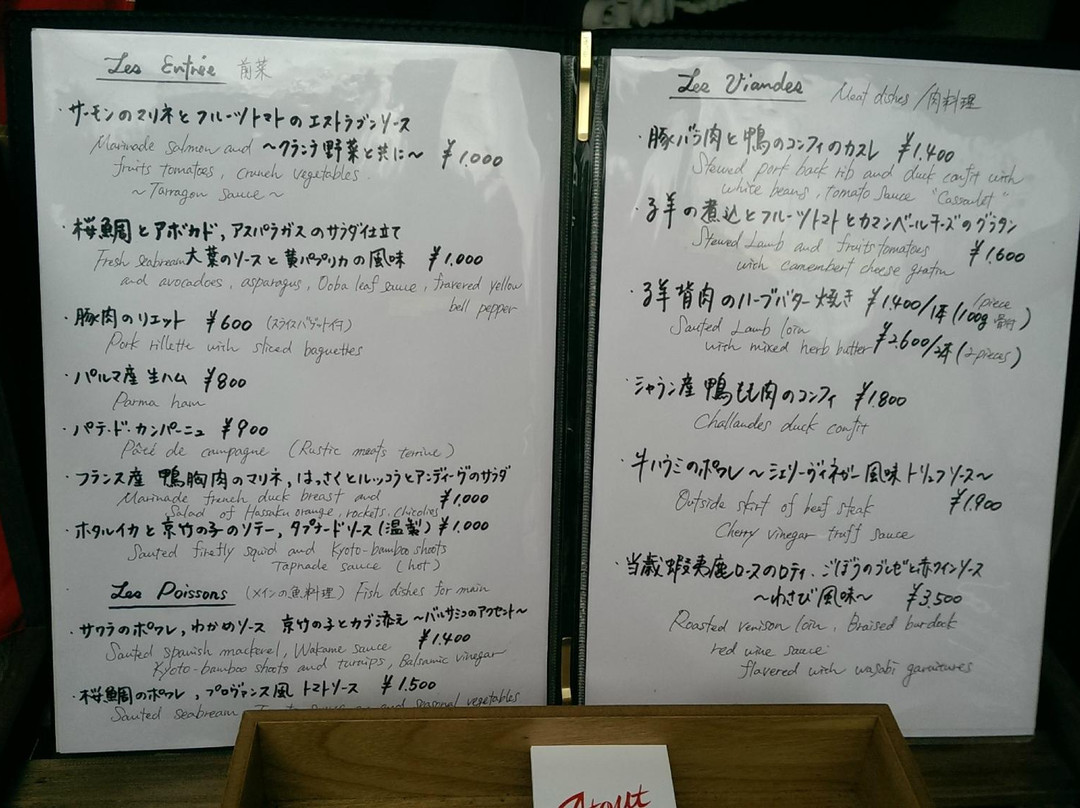 Les Entrée 前菜
・サーモンのマリネとフルーツトマトのエストラゴンソース
Marinade salmon and 〜クランチ野菜と共に〜 ¥1.000
fruits tomatoes, crunch vegetables.
~Tarragon sauce~
・桜鯛とアボカド,アスパラガスのサラダ仕立て
Fresh seabream 大葉のソースと黄パプリカの風味 ¥1.000
and avocadoes, asparagus, Ooba leaf sauce, fravered yellow
bell pepper
・豚肉のリエット ¥600 (スライスバゲット付)
Pork rillette with sliced baguettes
・パルマ産生ハム ¥800
Parma ham
・パテ・ド・カンパーニュ ¥900
Pâté de campagne (Rustic meats terrine)
・フランス産 鴨胸肉のマリネ,はっさくとルッコラとアンディーヴのサラダ
Marinade french duck breast and ¥1.000
Salad of Hassaku orange, rockets, chicolies
・ホタルイカと京竹の子のソテー,タプナードソース(温製) ¥1.000
Sauted firefly squid and Kyoto-bamboo shoots
Tapnade sauce (hot)
Les Poissons (メインの魚料理) Fish dishes for main
・サワラのポワレ,わかめソース 京竹の子とカブ添え 〜バルサミコのアクセント〜
Sauted spanish mackerel, Wakame sauce ¥1.400
Kyoto-bamboo shoots and turnips, Balsamic vinegar
・桜鯛のポワレ,プロヴァンス風 トマトソース ¥1.500
Sauted seabream and seasonal vegetables
Les Viandes Meat dishes/肉料理
・豚バラ肉と鴨のコンフィのカスレ ¥1.400
Stewed pork back rib and duck confit with
white beans, tomato sauce "Cassoulet"
・子羊の煮込とフルーツトマトとカマンベールチーズのグラタン
Stewed Lamb and fruits tomatoes ¥1.600
with camembert cheese gratin
・子羊背肉のハーブバター焼き ¥1.400/1本(100g 骨付) /1piece
Sauted Lamb loin ¥2.600/2本(2pieces)
with mixed herb butter
・シャラン産 鴨もも肉のコンフィ ¥1.800
Challandes duck confit
・牛ハラミのポワレ〜シェリーヴィネガー風味トリュフソース〜
Outside skirt of beef steak ¥1.900
Cherry vinegar truff sauce
・当歳蝦夷鹿ロースのロティ、ごぼうのブレゼと赤ワインソース
〜わさび風味〜 ¥3.500
Roasted venison loin, Braised burdock
red wine sauce
flavored with wasabi garnitures